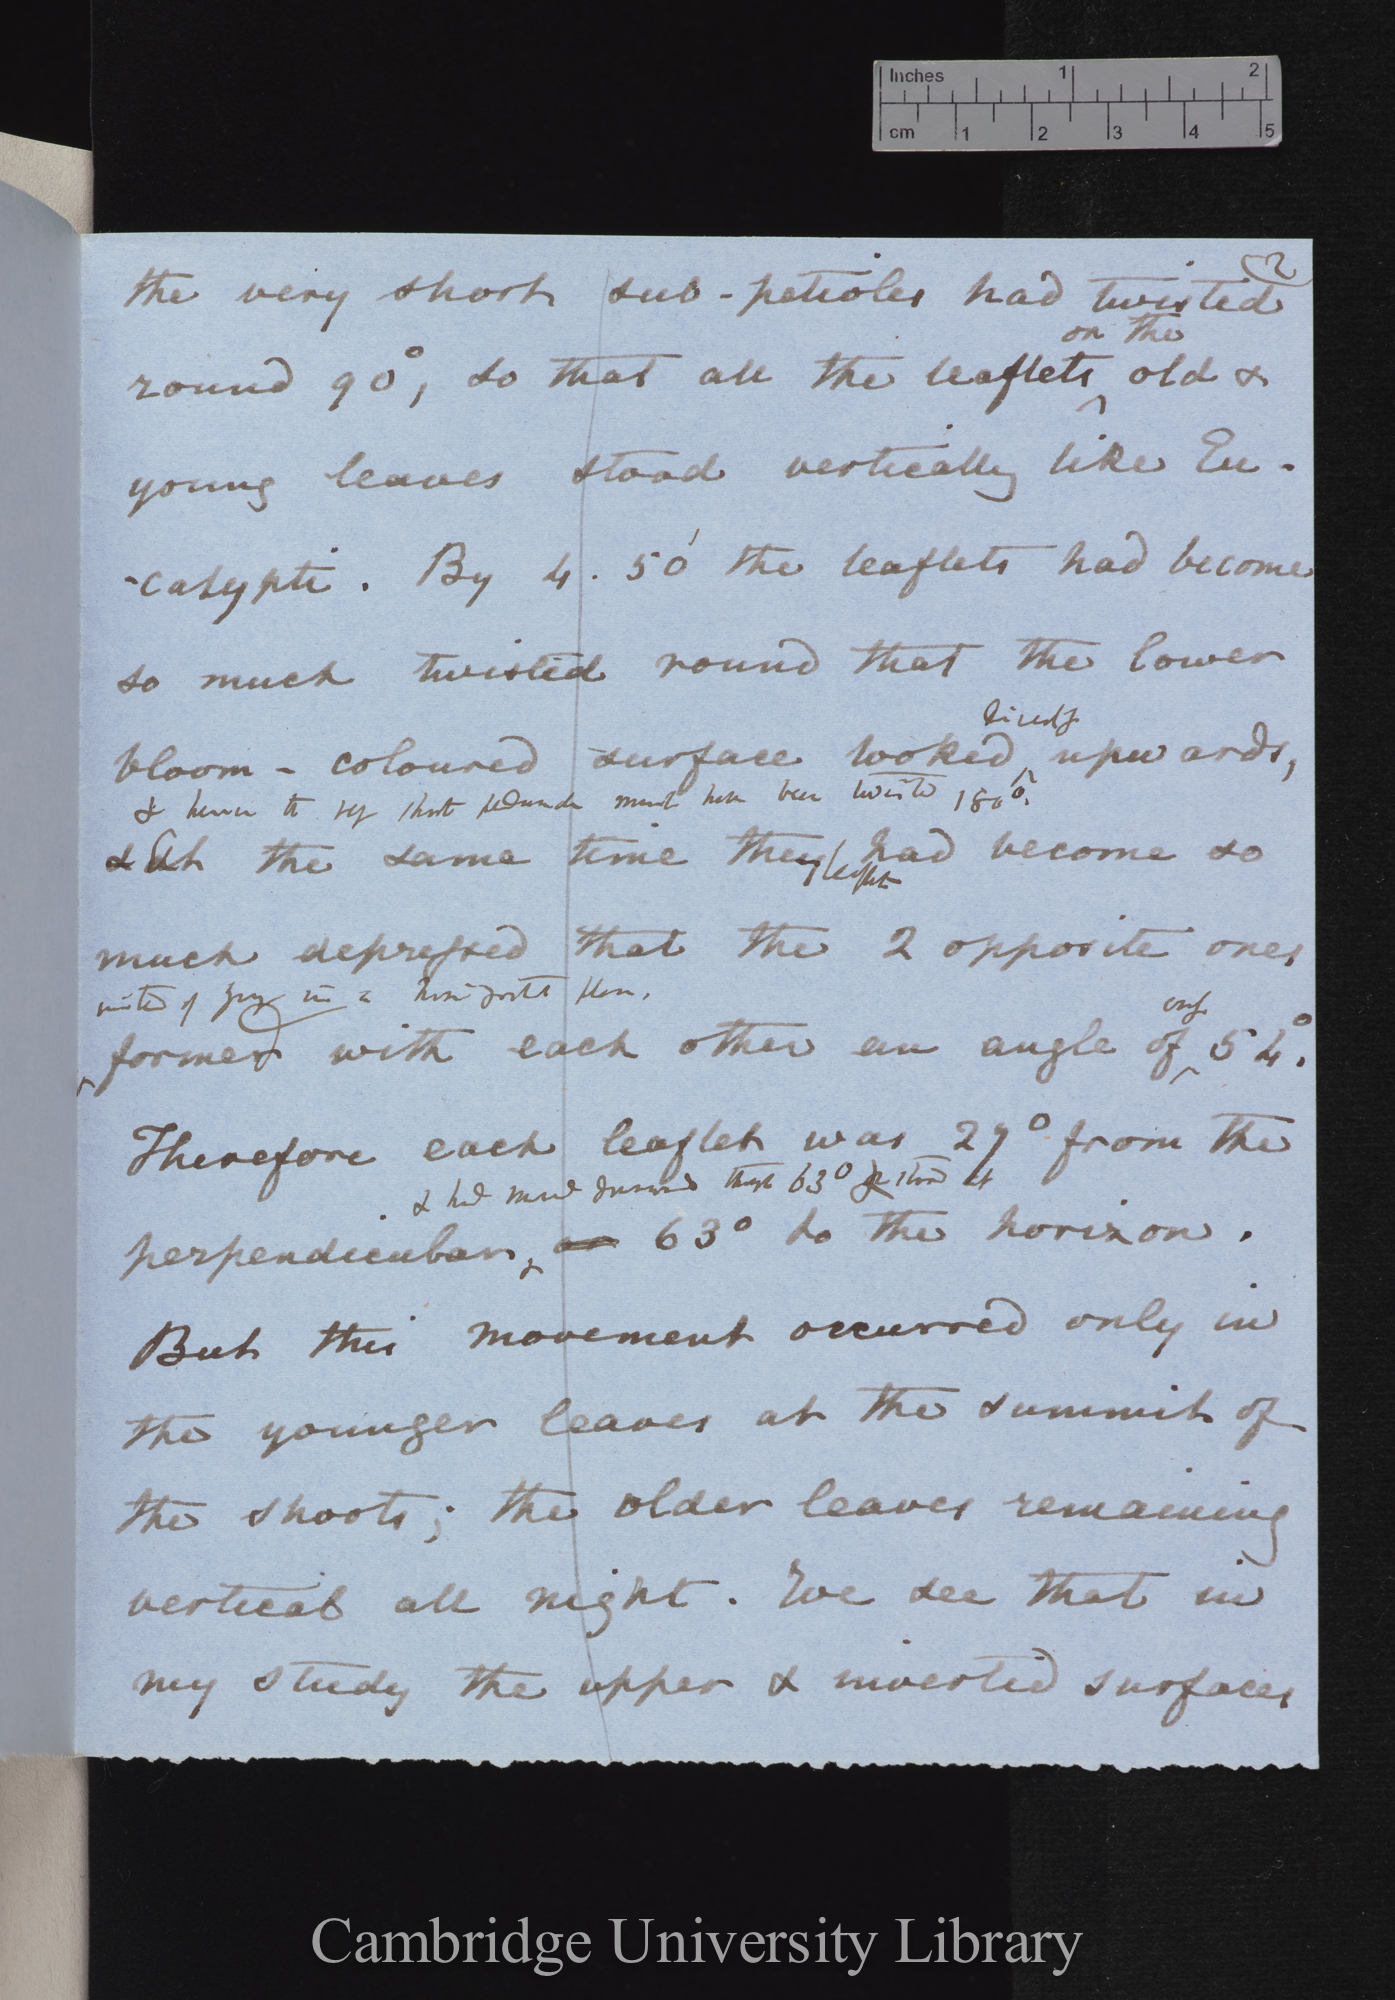 Inches 1 2
cm 1 2 3 4 5
(2
the very short sub-petioles had twisted
on the
round 90°, so that all the leaflets old &
young leaves stood vertically like Eu-
-calypti. By 4. 50' the leaflets had become
so much twisted round that the lower
directly
bloom-coloured surface looked upwards,
& hence the very short peduncle must have been twisted 180°.
& At the same time they had become so
leaflets
much depressed that the 2 opposite ones
instead of being in a horizontal plane,
only
formed with each other an angle of 54°.
Therefore each leaflet was 27° from the
& had moved downwards through 63° stood at
perpendicular, or 63° to the horizon.
But this movement occurred only in
the younger leaves at the summit of
the shoots; the older leaves remaining
vertical all night. We see that in
my study the upper & inverted surfaces
Cambridge University Library